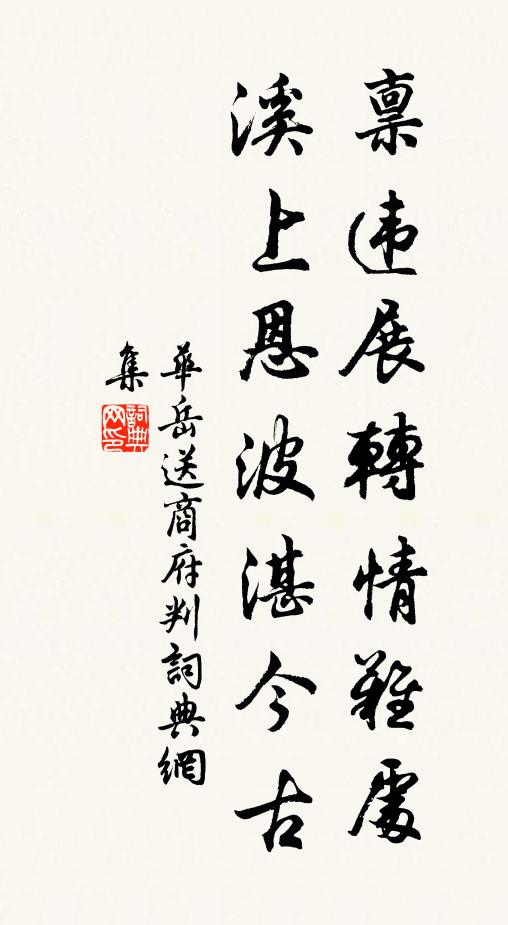 稟違展轉情難處
溪上恩波湛今古
華岳送商府判詞典網
集
詞典網印